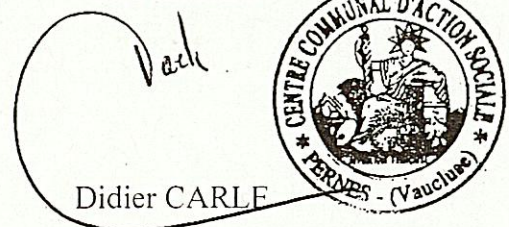 CENTRE COMMUNAL D'ACTION SOCIALE
* PERNES - (Vaucluse) *
Didier CARLE